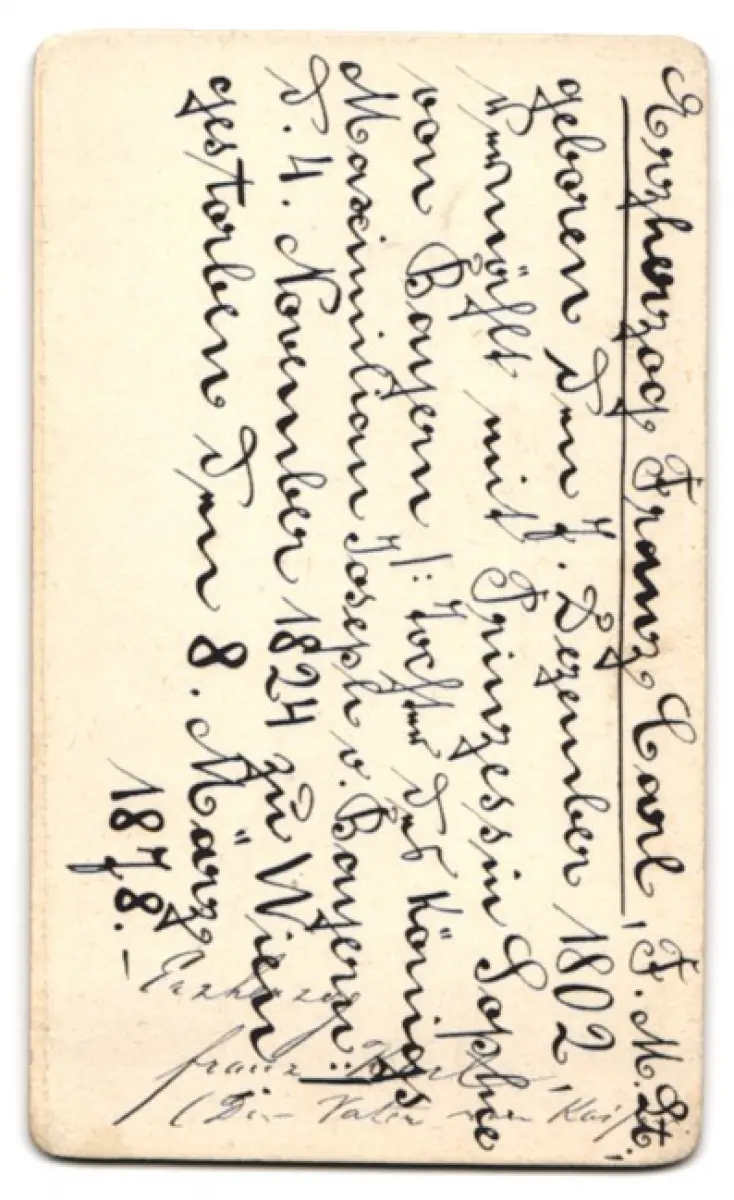 Erzherzog Franz Carl, F. M. Lt.
geboren den 7. Dezember 1802,
vermählt mit Prinzessin Sophie
von Bayern /: Tochter des Königs
Maximilian Joseph v. Bayern :/
d. 4. November 1824 zu Wien
gestorben den 8. März
1878.-
Erzherzog
Franz Karl
(Der Vater von